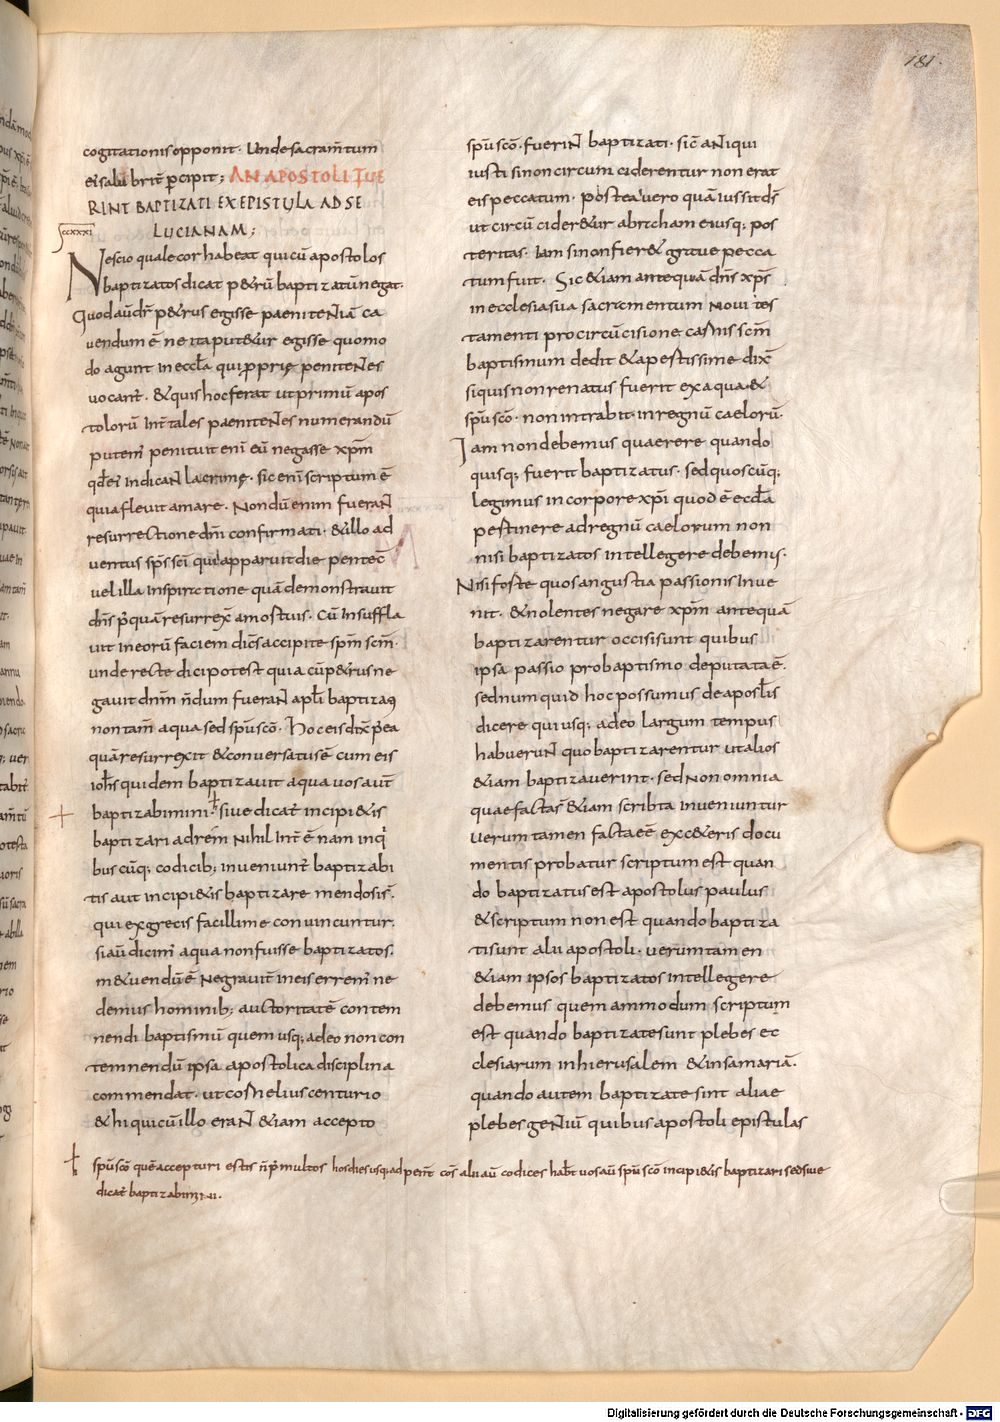 181.
cogitationis opponit. Unde sacram̄tum
ei salubrit̄ p̄cipit; AN APOSTOLI FUE
RINT BAPTIZATI EX EPISTULA AD SE
LUCIANAM;
ccxxxi
Nescio quale cor habeat qui cū apostolos
baptizatos dicat p&rū baptizatū negat.
Quod aud̄r p&rus egisse paenitentiā ca
uendum ē ne ita put&ur egisse quomo
do agunt in eccl̄a qui p̄prie penitentes
uocant̄. & quis hoc ferat ut primū apos
tolorū int̄ tales paenitentes numerandū
putem̄ penituit enī eū negasse xp̄m
qd̄ eī indicant lacrime. sic enī scriptum ē
quia fleuit amare. Nondū enim fuerant
resurrectione dn̄i confirmati. & illo ad
uentus sp̄s sc̄i qui apparuit die pentec̄
uel illa inspiratione quā demonstrauit
dn̄s p̄quā resurrex̄ a mortuis. Cū insuffla
uit in eorū faciem dic̄s accipite sp̄m sc̄m.
unde recte dici potest quia cū p&rus ne
gauit dn̄m n̄dum fuerant apl̄i baptizati
non tam̄ aqua sed sp̄u sc̄o. Hoc eis dix̄ p̄ea
quā resurrexit & conuersatus ē cum eis
ioh̄s quidem baptizauit aqua uos aut̄
baptizabimini. siue dicat̄ incipi&is
baptizari ad rem nihil int̄ ē nam in q̄
buscūq; codicib; inueniunt̄ baptizabi
tis aut incipi&is baptizare mendosi s̄.
qui ex grecis facillime conuincuntur.
si aū dicim̄ aqua non fuisse baptizatos.
m&uendū ē ne grauit̄ in eis errem̄ ne
demus hominib; auctoritatē contem
nendi baptismū quem usq; adeo non con
temnendū ipsa apostolica disciplina
commendat. ut cornelius centurio
& hi qui cū illo erant &iam accepto
sp̄u sc̄o. fuerint baptizati. sic̄ antiqui
iusti si non circumciderentur non erat
eis peccatum. postea uero quā iussit ds̄
ut circūcider&ur abraham eiusq; pos
teritas. Iam si non fier& graue pecca
tum fuit. Sic &iam antequā dn̄s xp̄s
in ecclesia sua sacramentum noui tes
tamenti pro circūcisione carnis sc̄m
baptismum dedit & apertissime dix̄
si quis non renatus fuerit ex aqua &
sp̄u sc̄o. non intrabit in regnū caelorū.
Iam non debemus quaerere quando
quisq; fuerit baptizatus. sed quoscūq;
legimus in corpore xp̄i quod ē eccl̄a
pertinere ad regnū caelorum non
nisi baptizatos intellegere debemus.
Nisi forte quos angustia passionis inue
nit. & nolentes negare xp̄m antequā
baptizarentur occisi sunt quibus
ipsa passio pro baptismo deputata ē.
sed numquid hoc possumus de apostl̄is
dicere qui usq; adeo largum tempus
habuerunt quo baptizarentur ut alios
&iam baptizauerint. sed non omnia
quae facta s̄ &iam scribta inueniuntur
uerum tamen facta eē ex c&eris docu
mentis probatur scriptum est quan
do baptizatus est apostolus paulus
& scriptum non est quando baptiza
ti sunt alii apostoli. uerum tamen
&iam ipsos baptizatos intellegere
debemus quemammodum scriptum
est quando baptizate sunt plebes ec
clesiarum in hierusalem & in samariā.
quando autem baptizate sint aliae
plebes gentiū quibus apostoli epistulas
sp̄u sc̄o quē accepturi estis n̄ p̄ multos hos dies usq; ad pent̄ cos̄ alii aū codices habt̄ uos aū sp̄u sc̄o incipi&is baptizari sed siue
dicat̄ baptizabimini.
Digitalisierung gefördert durch die Deutsche Forschungsgemeinschaft - DFG